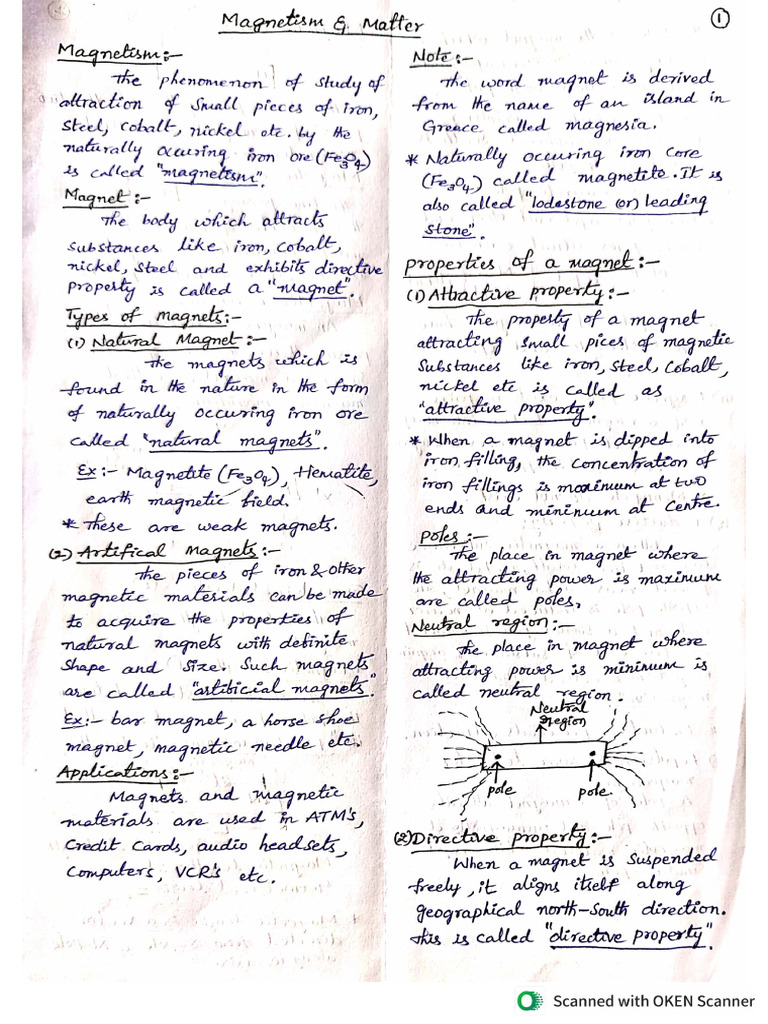 Magnetism & Matter
1
Magnetism:-
The phenomenon of study of
attraction of small pieces of iron,
steel, cobalt, nickel etc. by the
naturally occuring iron ore (Fe3O4)
is called "magnetism".
Magnet:-
The body which attracts
substances like iron, cobalt,
nickel, steel and exhibits directive
property is called a "magnet".
Types of magnets:-
(1) Natural Magnet:-
The magnets which is
found in the nature in the form
of naturally occuring iron ore
called "natural magnets".
Ex:- Magnetite (Fe3O4), Hematite,
earth magnetic field.
* These are weak magnets.
(2) Artifical magnets:-
The pieces of iron & other
magnetic materials can be made
to acquire the properties of
natural magnets with definite
shape and size. Such magnets
are called "artibicial magnets."
Ex:- bar magnet, a horse shoe
magnet, magnetic needle etc.
Applications:-
Magnets and magnetic
materials are used in ATM's,
Credit Cards, audio headsets,
Computers, VCR's etc.
Note:-
The word magnet is derived
from the name of an island in
Greece called magnesia.
* Naturally occuring iron core
(Fe3O4) called magnetite. It is
also called "lodestone (or) leading
stone".
Properties of a magnet:-
(1) Attractive property:-
The property of a magnet
attracting small pices of magnetic
substances like iron, steel, cobalt,
nickel etc is called as
"attractive property".
* When a magnet is dipped into
iron filling, the concentration of
iron fillings is maximum at two
ends and minimum at centre.
Poles:-
The place in magnet where
the attracting power is maximum
are called poles.
Neutral region:-
The place in magnet where
attracting power is minimum is
called neutral region.
Neutral
region
pole
pole
(2) Directive property:-
When a magnet is suspended
freely, it aligns itself along
geographical north-south direction.
This is called "directive property".
Scanned with OKEN Scanner